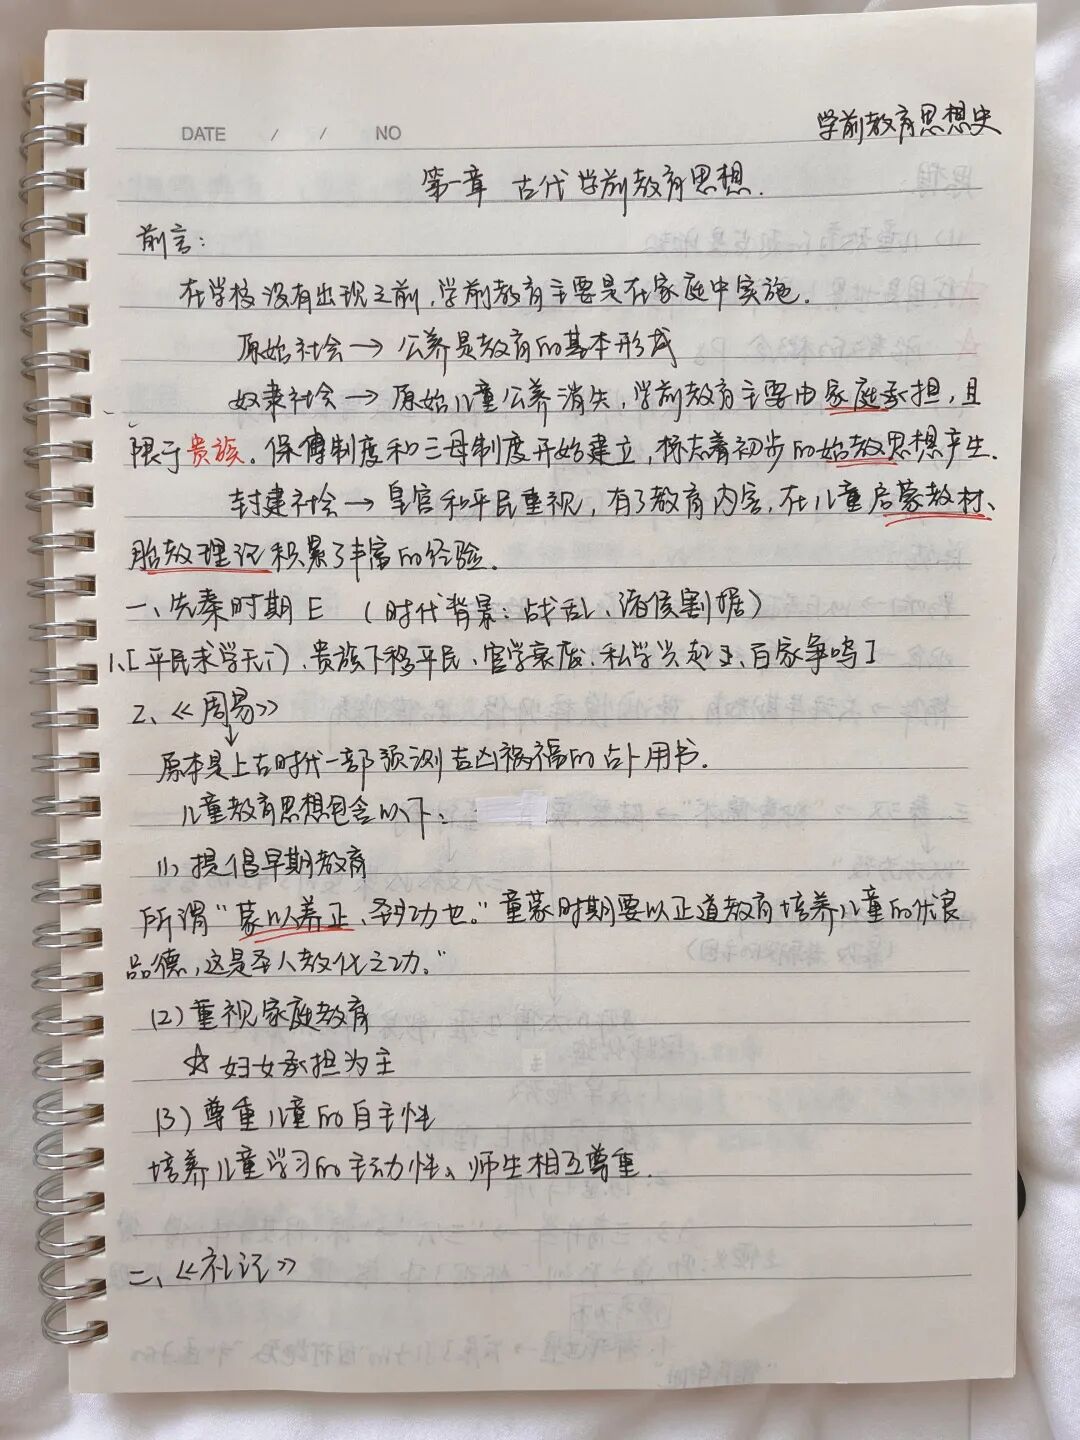 DATE / / NO
学前教育思想史
第一章 古代学前教育思想.
前言:
在学校没有出现之前,学前教育主要是在家庭中实施.
原始社会→公养是教育的基本形式
奴隶社会→原始儿童公养消失,学前教育主要由家庭承担,且
限于贵族。保傅制度和三母制度开始建立,标志着初步的胎教思想产生.
封建社会→皇宫和平民重视,有了教育内容,在儿童启蒙教材、
胎教理论积累了丰富的经验.
一、先秦时期 (时代背景:战乱、诸侯割据)
1、[平民求学无门、贵族下移平民、官学衰废、私学兴起、百家争鸣]
2、《周易》
原本是上古时代一部预测吉凶祸福的占卜用书.
儿童教育思想包含以下:
(1)提倡早期教育
所谓"蒙以养正,圣功也。"童蒙时期要以正道教育培养儿童的优良
品德,这是圣人教化之功。"
(2)重视家庭教育
☆妇女承担为主
(3)尊重儿童的自主性
培养儿童学习的主动性、师生相互尊重.
二、《礼记》